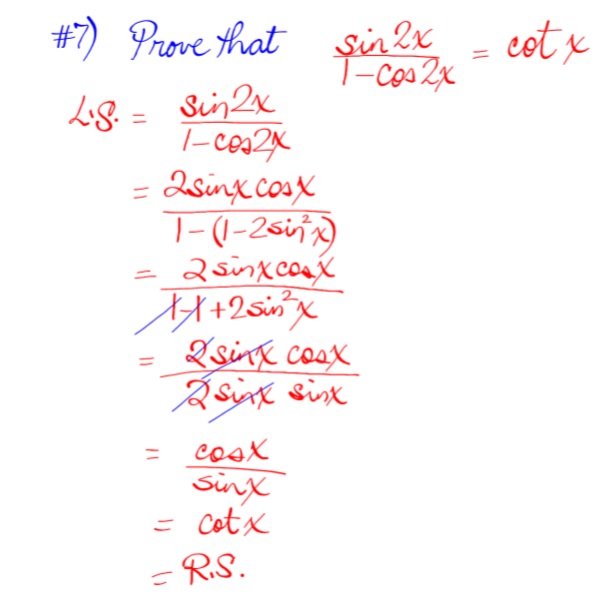 #7) Prove that sin2x/1-cos2x = cotx
L.S. = sin2x/1-cos2x
= 2sinxcosx/1-(1-2sin²x)
= 2sinxcosx/1-1+2sin²x
= 2sinx cosx/2sinx sinx
= cosx/sinx
= cotx
= R.S.